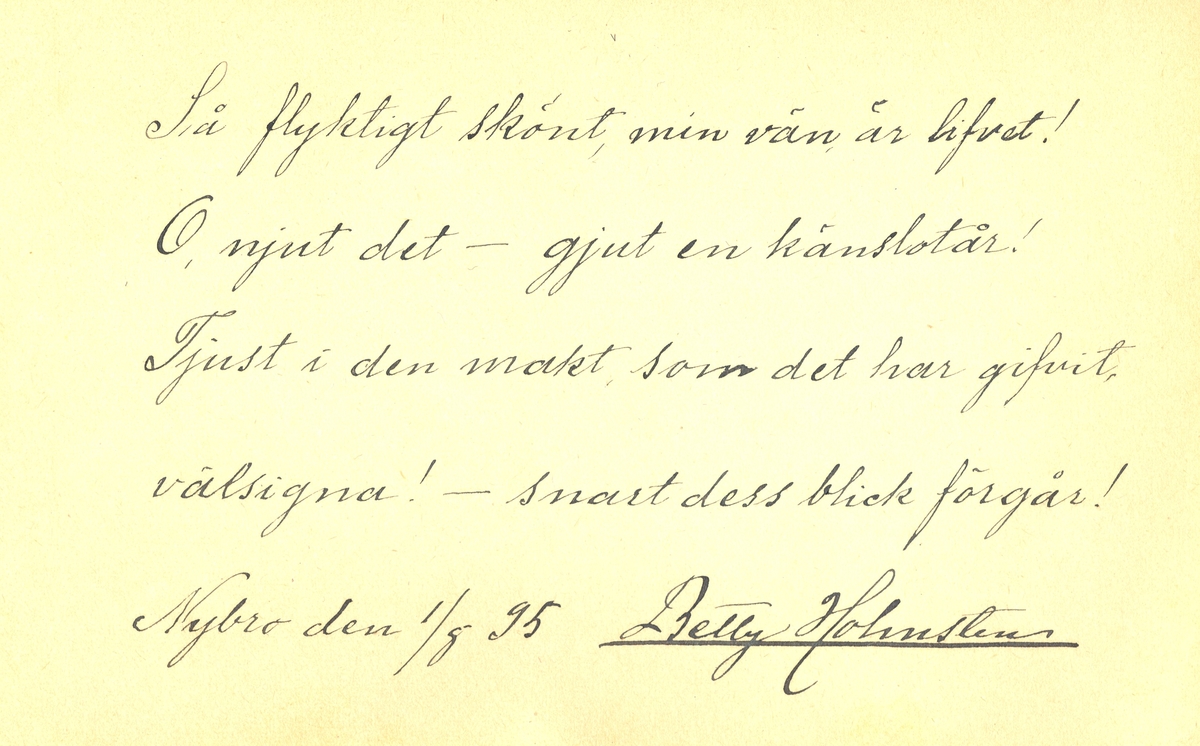 Så flyktigt skönt, min vän, är lifvet!
O, njut det — gjut en känslotår!
Tjust i den makt, som det har gifvit,
välsigna! — snart dess blick förgår!
Nybro den 1/8 95 Betty Holmsten